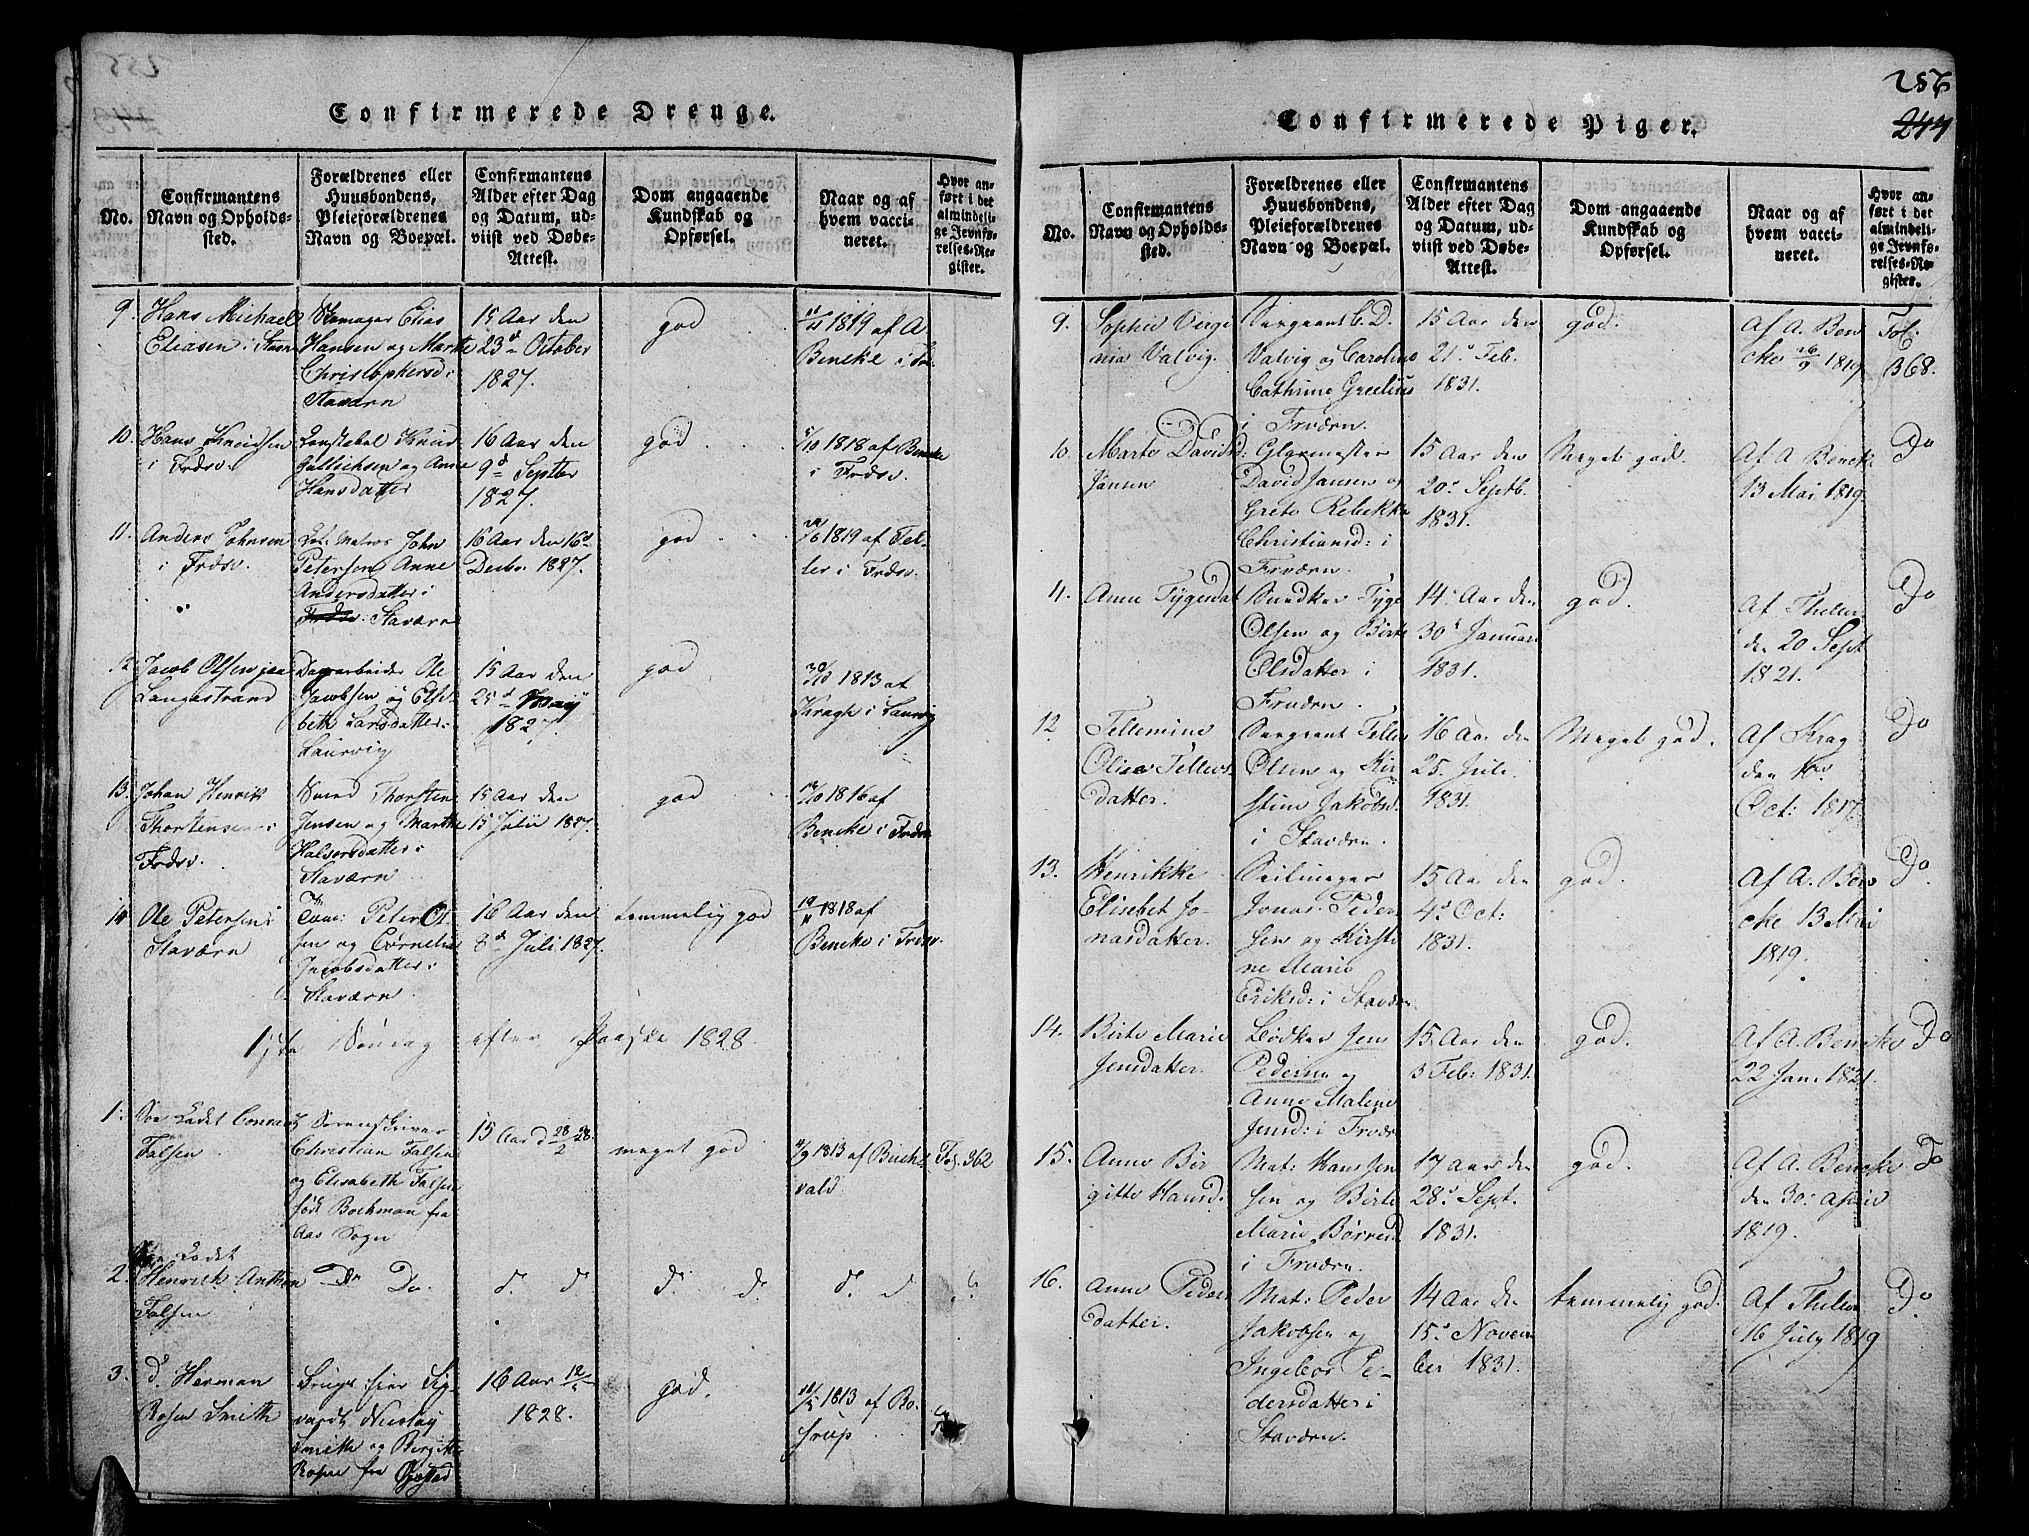 Confirmerede Drenge.
No.
Confirmantens
Navn og Opholds-
sted.
Forældrenes eller
Huusbondens,
Pleieforældrenes
Navn og Boepæl.
Confirmantens
Alder efter Dag
og Datum, ud-
viist ved Døbe-
Attest.
Dom angaaende
Kundskab og
Opførsel.
Naar og af
hvem vacci-
neret.
Hvor an-
ført i det
almindeli-
ge Jevnfø-
relses-Re-
gister.
9.
Hans Michael
Eliasen i Stavn
Skomager Elias
Hansen og Marthe
Christophersd:
Staværn
15 Aar den
23d October
1827.
god
11/11 1819 af A.
Bencke i Frv.
10.
Hans Knudsen
i Frdsv.
Constabel Knud
Gullichsen og Anne
Hansdatter
16 Aar den
9d Septber
1827.
god
5/10 1818 af Bencke
i Frdsv.
11.
Anders Johnsen
i Frdsv.
Matros John
Petersen Anne
Andersdatter i
Frdsv. Staværn
16 Aar den 16d
Decbr. 1827.
god
1819 af Tel-
ler i Frdsv.
12.
Jacob Olsen paa
Langestrand
Dagarbeider Ole
Jacobsen og Elisa-
beth Larsdatter i
Laurvig
15 Aar den
25d May
1827.
god
30/10 1813 af
Kragh i Laurvig
13.
Johan Henrik
Thorstensen i
Frdsv.
Smed Thorsten
Jensen og Marthe
Halvorsdatter i
Staværn
15 Aar den
15 Julii 1827.
god
1816 af
Bencke i Frdsv
14.
Ole Petersen i
Staværn
Tøm: Peter Ol-
sen og Cornelia
Jacobsdatter i
Staværn
16 Aar den
8d Juli 1827.
temmelig god
19/11 1818 af
Bencke i Frdsv.
1ste Søndag efter Paaske 1828
1.
Søe Cadet Conrad
Falsen
Sorenskriver
Christian Falsen
og Elisabeth Falsen
født Bochman fra
Aas Sogn
15 Aar d 28/2 28.
meget god
11/9 1813 af Buch
vald
Fol. 362
2.
Søe Cadet
Henrick Anthon
Falsen
Do Do
d. d.
d. d.
d. d
3.
d. Herman
Rosen Smith
Brugs Eier Sig-
vardt Nicolay
Smith og Bergitte
Rosen fra
16 Aar 12/5
1828.
god.
1813 af Bo-
strup
Confirmerede Piger.
256
244
No.
Confirmantens
Navn og Opholds-
sted.
Forældrenes eller
Huusbondens,
Pleieforældrenes
Navn og Boepæl.
Confirmantens
Alder efter Dag
og Datum, ud-
viist ved Døbe-
Attest.
Dom angaaende
Kundskab og
Opførsel.
Naar og af
hvem vacci-
neret.
Hvor an-
ført i det
almindeli-
ge Jevnfø-
relses-Re-
gister.
9.
Sophie Virgi
nia Valvig.
Sergeant C. D.
Valvig og Caroline
Cathrine Grelius
i Frværn.
15 Aar den
21d Feb.
1831.
god.
Af A. Ben
cke 26/9 1819
Fol:
368.
10.
Marte Davids:
Jansen
Glarmester
David Jansen og
Grete Rebekka
Christiansd: i
Frværn.
15 Aar den
20d Septb.
1831.
Meget god.
Af A. Bencke
13 Mai 1819.
Do
11.
Anne Tygesdat
Bundker Tyge
Olsen og Birte
Olsdatter i
Frværn.
14 Aar den
30d Januar
1831.
god.
Af Theller
den 20 Sept
1821.
Do
12
Tellemine
Olise Tellevs
datter.
Sergeant Tellev
Olsen og Kir
stine Jakobsd.
i Staværn.
16 Aar den
25. Juli
1831.
Meget god.
Af Krag
den
Oct: 1817.
Do
13.
Henrikke
Elisebet Jo-
nasdatter.
Seilmager
Jonas Peder
sen og Kirsti
ne Marie
Eriksd: i Stavern
15 Aar den
4d Oct:
1831.
god.
Af A. Ben
cke 13 Mai
1819.
Do.
14.
Birte Marie
Jensdatter.
Bødker Jens
Pedersen og
Anne Malene
Jensd: i Frværn
15 Aar den
3 Feb: 1831.
god.
Af A. Bencke
22 Jan. 1821.
Do
15.
Anne Bir
gitte Hansd.
Mat: Hans Jen
sen og Birte
Marie Børresd
i Frværn.
17 Aar den
28d Sept.
1831.
god.
Af A. Bencke
den 30d April
1819.
Do
16.
Anne Peders
datter.
Mat: Peder
Jakobsen og
Ingebor Pe-
dersdatter i
Stavern.
14 Aar den
15d Novem
ber 1831.
temmelig god.
Af Theller
16 July 1819
Do.